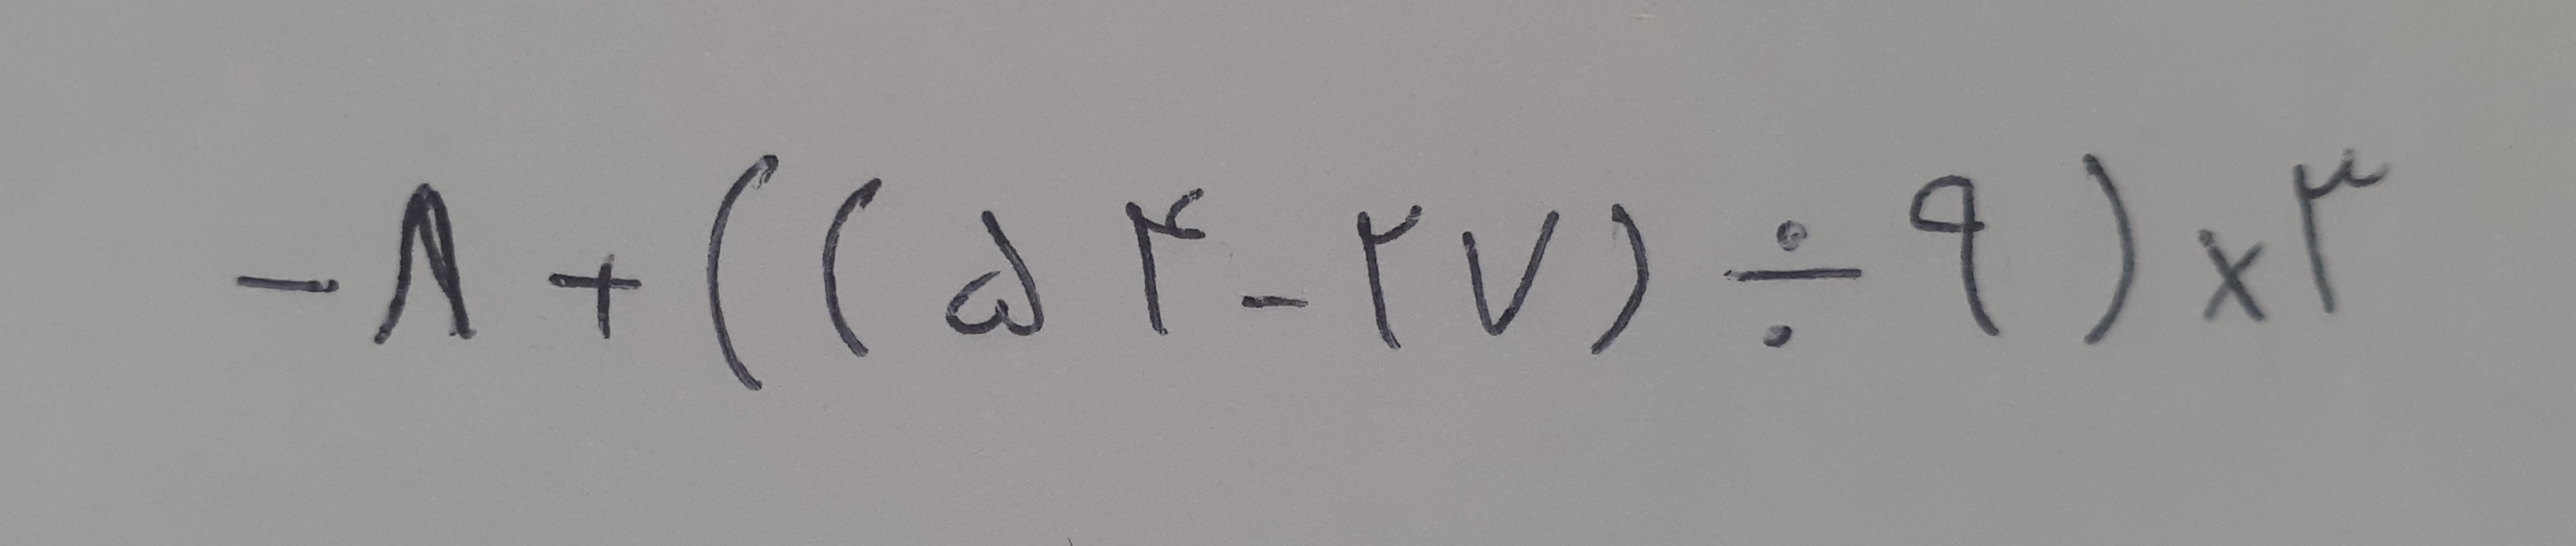 -۸+((۵۴-۲۷)÷۹)×۳